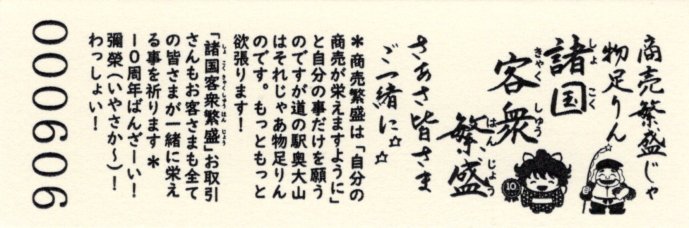 商売繁盛じゃ
物足りん
諸国
しょこく
客衆
きゃくしゅう
繁盛
はんじょう
さあさ皆さま
ご一緒に☆☆
＊商売繁盛は「自分の
商売が栄えますように」
と自分の事だけを願う
のですが道の駅奥大山
はそれじゃあ物足りん
のです。もっともっと
欲張ります！
「諸国客衆繁盛」お取引
しょこくきゃくしゅうはんじょう
さんもお客さまも全て
の皆さまが一緒に栄え
る事を祈ります＊
10周年ばんざーい！
彌榮（いやさか〜）！
わっしょい！
10
000609